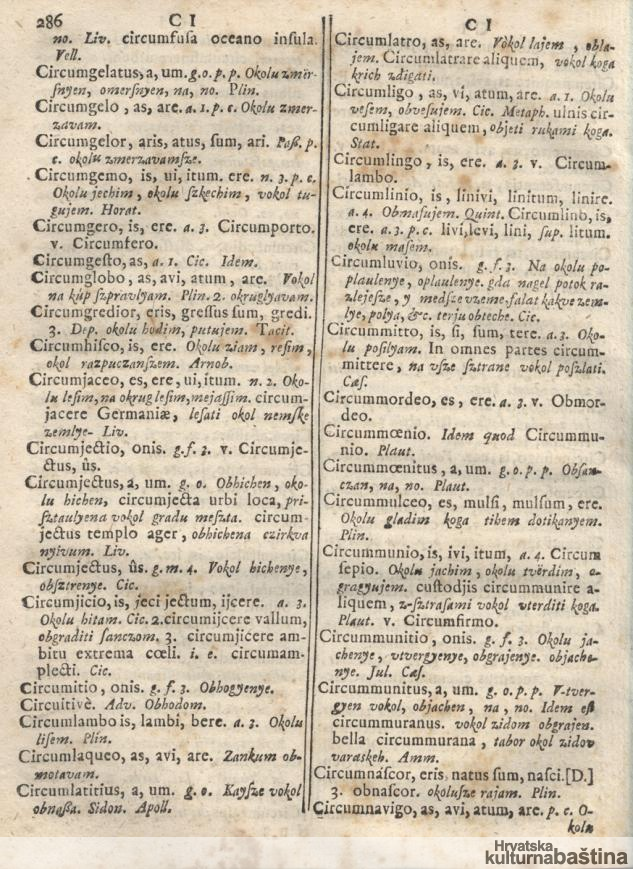 286 C I
no. Liv. circumfuſa oceano inſula.
Vell.
Circumgelatus, a, um. g. o. p. p. Okolu zmër-
ſnyen, omerſnyen, na, no. Plin.
Circumgelo, as, are. a. 1. p. c. Okolu zmer-
zavam.
Circumgelor, aris, atus, ſum, ari. Paß. p.
c. okolu zmerzavamſze.
Circumgemo, is, ui, itum. ere. n. 3. p. c.
Okolu jechim, okolu ſzkechim, vokol tu-
gujem. Horat.
Circumgero, is, ere. a. 3. Circumporto.
v. Circumfero.
Circumgeſto, as, a. 1. Cic. Idem.
Circumglobo, as, avi, atum, are. Vokol
na kúp ſzpravlyam. Plin. 2. okruglyavam.
Circumgredior, eris, greſſus ſum, gredi.
3. Dep. okolu hodim, putujem. Tacit.
Circumhiſco, is, ere. Okolu ziam, reſim,
okol razpuczanſzem. Arnob.
Circumjaceo, es, ere, ui, itum. n. 2. Oko-
lu leſim, na okrug leſim, mejaſſim. circum-
jacere Germaniæ, leſati okol nemſke
zemlye- Liv.
Circumjectio, onis. g. f. 3. v. Circumje-
ctus, ûs.
Circumjectus, a, um. g. o. Obhichen, oko-
lu hichen, circumjecta urbi loca, pri-
ſztaulyena vokol gradu meſzta. circum-
jectus templo ager, obhichena czirkva
nyivum. Liv.
Circumjectus, ûs. g. m. 4. Vokol hichenye,
obſztrenye. Cic.
Circumjicio, is, jeci jectum, ijcere. a. 3.
Okolu hitam. Cic. 2. circumijcere vallum,
obgraditi ſanczom. 3. circumjicere am-
bitu extrema cœli. i. e. circumam-
plecti. Cic.
Circumitio, onis. g. f. 3. Obhogyenye.
Circuitivè. Adv. Obhodom.
Circumlambo is, lambi, bere. a. 3. Okolu
liſem. Plin.
Circumlaqueo, as, avi, are. Zankum ob-
motavam.
Circumlatitius, a, um. g. o. Kayſze vokol
obnaßa. Sidon. Apoll.
C I
Circumlatro, as, are. Vokol lajem, obla-
jem. Circumlatrare aliquem, vokol koga
krich zdigati.
Circumligo, as, vi, atum, are. a. 1. Okolu
veſem, obveſujem. Cic. Metaph. ulnis cir-
cumligare aliquem, objeti rukami koga.
Stat.
Circumlingo, is, ere. a. 3. v. Circum-
lambo.
Circumlinio, is, linivi, linitum, linire.
a. 4. Obmaſujem. Quint. Circumlino, is,
ere. a. 3. p. c. livi, levi, lini, ſup. litum.
okolu maſem.
Circumluvio, onis. g. f. 3. Na okolu po-
plaulenye, oplaulenye. gda nagel potok ra-
zlejeſze, y medſze vzeme, falat kakve zem-
lye, polya, &c. terju obteche. Cic.
Circummitto, is, ſi, ſum, tere. a. 3. Oko-
lu poſilyam. In omnes partes circum-
mittere, na vſze ſztrane vokol poſzlati.
Cæſ.
Circummordeo, es, ere. a. 3. v. Obmor-
deo.
Circummœnio. Idem quod Circummu-
nio. Plaut.
Circummœnitus, a, um. g. o. p. p. Obſan-
czan, na, no. Plaut.
Circummulceo, es, mulſi, mulſum, ere.
Okolu gladim koga tihem dotikanyem.
Plin.
Circummunio, is, ivi, itum, a. 4. Circum
ſepio. Okolu jachim, okolu tvërdim, o-
gragyujem. cuſtodjis circummunire a-
liquem, z-ſztraſami vokol vterditi koga.
Plaut. v. Circumfirmo.
Circummunitio, onis. g. f. 3. Okolu ja-
chenye, vtvergyenye, obgrajenye. objache-
nye. Jul. Cæſ.
Circummunitus, a, um. g. o. p. p. V-tver-
gyen vokol, objachen, na, no. Idem eſt
circummuranus. vokol zidom obgrajen.
bella circummurana, tabor okol zidov
varaskeh. Amm.
Circumnaſcor, eris, natus ſum, naſci. [D.]
3. obnaſcor. okoluſze rajam. Plin.
Circumnavigo, as, avi, atum, are. p. c. O-
kolu
Hrvatska
kulturnabaština